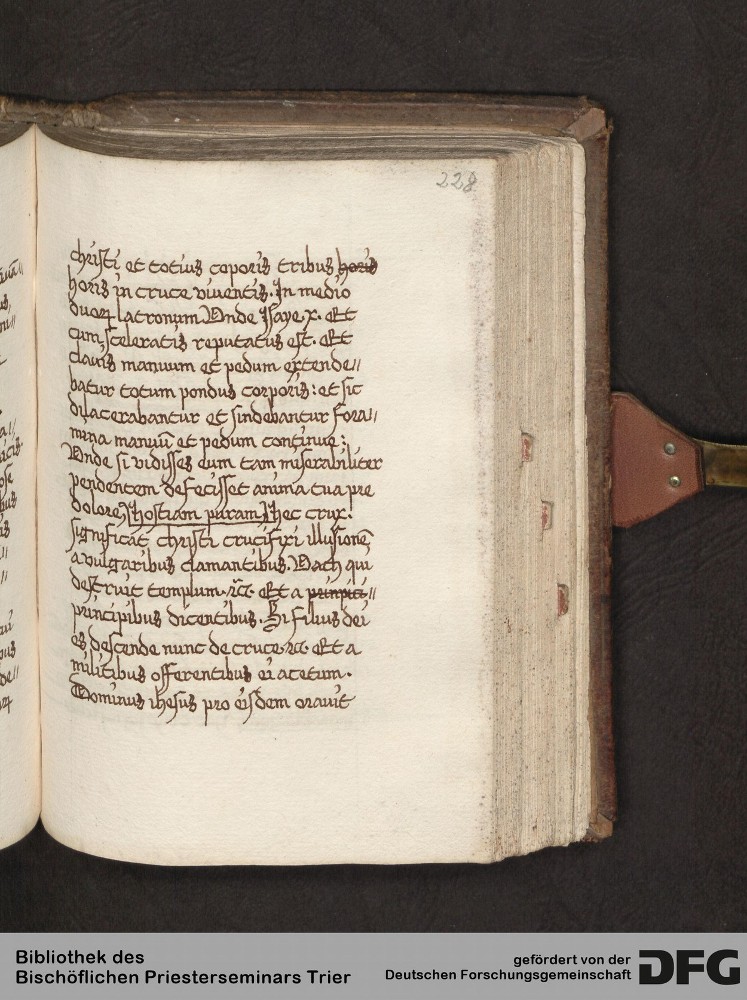 228
christi et totius coporis tribus horis
horis in cruce viventis. In medio
duorꝝ latronum. Unde Isaye. x. Et
cum sceleratis reputatus est. Et
clavis manuum et pedum extende//
batur totum pondus corporis: et sic
dilacerabantur et sindebantur fora//
mina manuū et pedum continue:
Unde si vidisses eum tam miserabiliter
pendentem defecisset anima tua pre
dolore. hostiam puram. hec crux.
significat christi crucifixi illusionē
a vulgaribus clamantibus. Vach qui
destruit templum. ꝛc. Et a principi//
principibus dicentibus. Si filius dei
es descende nunc de cruce. ꝛc. Et a
militibus offerentibus ei acetum.
Dominus ihesus pro eisdem oravit
Bibliothek des
Bischöflichen Priesterseminars Trier
gefördert von der
Deutschen Forschungsgemeinschaft
DFG